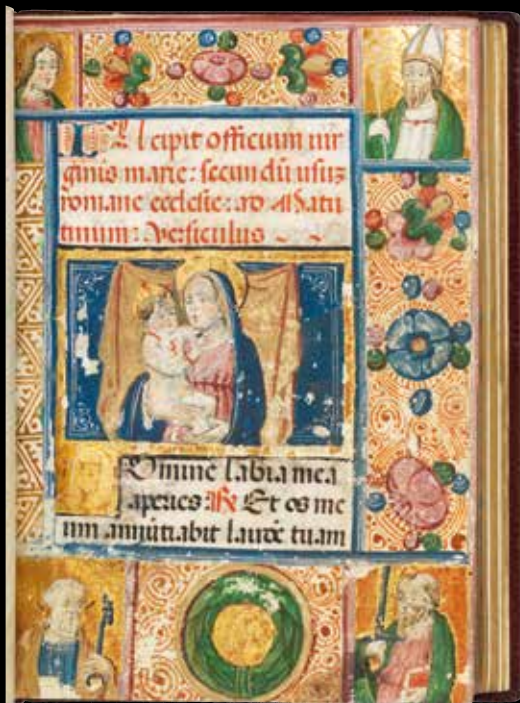 Incipit officium uir
ginis marie: secundũ usuz
romane ecclesie: ad Matu
tinum: Versiculus
Domine labia mea
aperies: R Et os me
um annũtiabit laudẽ tuam